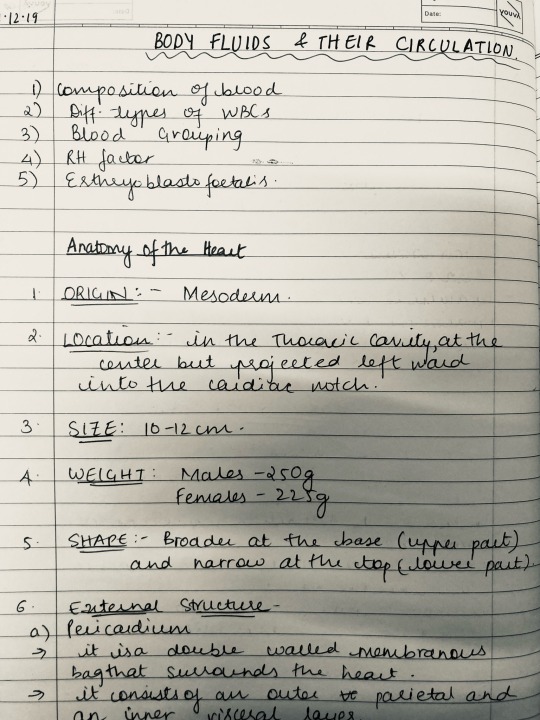 ·12·19
Date:
youva
BODY FLUIDS & THEIR CIRCULATION.
1) Composition of blood
2) Diff. types of WBCs
3) Blood Grouping
4) RH factor
5) Erthryoblasto foetalis.
Anatomy of the Heart
1. ORIGIN:- Mesoderm.
2. LOCATION:- in the Thoracic cavity, at the
center but projected left ward
into the cardiac notch.
3. SIZE: 10-12 cm.
4. WEIGHT: Males - 250g
Females - 225g
5. SHAPE:- Broader at the base (upper part)
and narrow at the top (lower part)
6. External Structure -
a) Pericardium
→ it is a double walled membranous
bag that surrounds the heart.
→ it consists of an outer parietal and
an inner visceral layer.